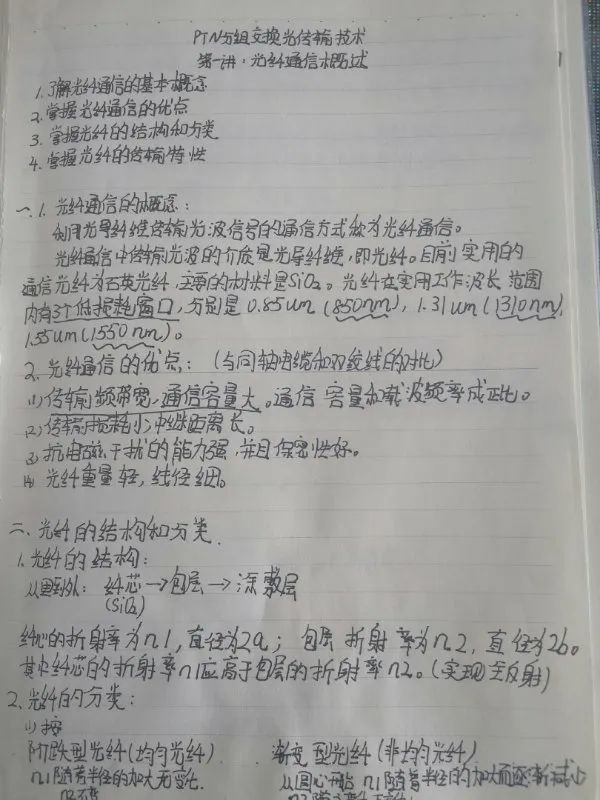 PTN分组交换光传输技术
第一讲:光纤通信概述
1
1.了解光纤通信的基本概念
2.掌握光纤通信的优点
3.掌握光纤的结构和分类
4.掌握光纤的传输特性
一、1.光纤通信的概念:
利用光导纤维传输光波信号的通信方式做为光纤通信。
光纤通信中传输光波的介质是光导纤维,即光纤。目前实用的
通信光纤为石英光纤,主要的材料是SiO₂。光纤在实用工作波长范围
内有3个低损耗窗口,分别是0.85um(850nm),1.31um(1310nm),
1.55um(1550nm)。
2.光纤通信的优点:(与同轴电缆和双绞线的对比)
(1)传输频带宽,通信容量大。通信容量和载波频率成正比。
(2)传输损耗小中继距离长。
(3)抗电磁干扰的能力强,并且保密性好。
(4)光纤重量轻,线径细。
二、光纤的结构和分类.
1.光纤的结构:
从里到外:纤芯→包层→涂敷层
(SiO₂)
纤心的折射率为n1,直径为2a;包层折射率为n2,直径为2b。
其中纤芯的折射率n1应高于包层的折射率n2。(实现全反射)
2.光纤的分类:
(1)按
阶跃型光纤(均匀光纤) 渐变型光纤(非均匀光纤)
n1随着半径的加大无变化 从圆心开始n1随着半径的加大而逐渐减小
n2不变